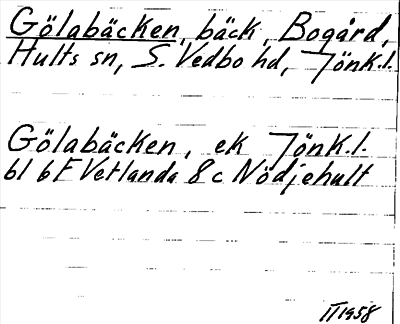 Gölabäcken, bäck, Bogård,
Hults sn, S. Vedbo hd, Jönk.l.
Gölabäcken, ek Jönk.l.
bl 6F Vetlanda 8c Nödjehult
II 1958